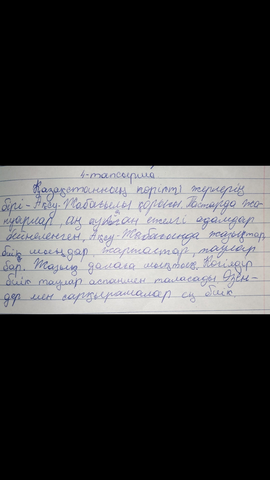 4-тапсырма
Қазақстанның көрікті жерлерің
бірі-Ақсу-Жабағылы қорығы Тастарда жа-
нуарлар, аң аулаған ежелгі адамдар
бейнеленген, Ақсу-Жабағында жазықтар,
биік шыңдар, жартастар, таулар
бар. Жазық далаға шықтық. Көгілдір
биік таулар аспанмен таласады Өзен-
дер мен сарқырамалар ең биік.